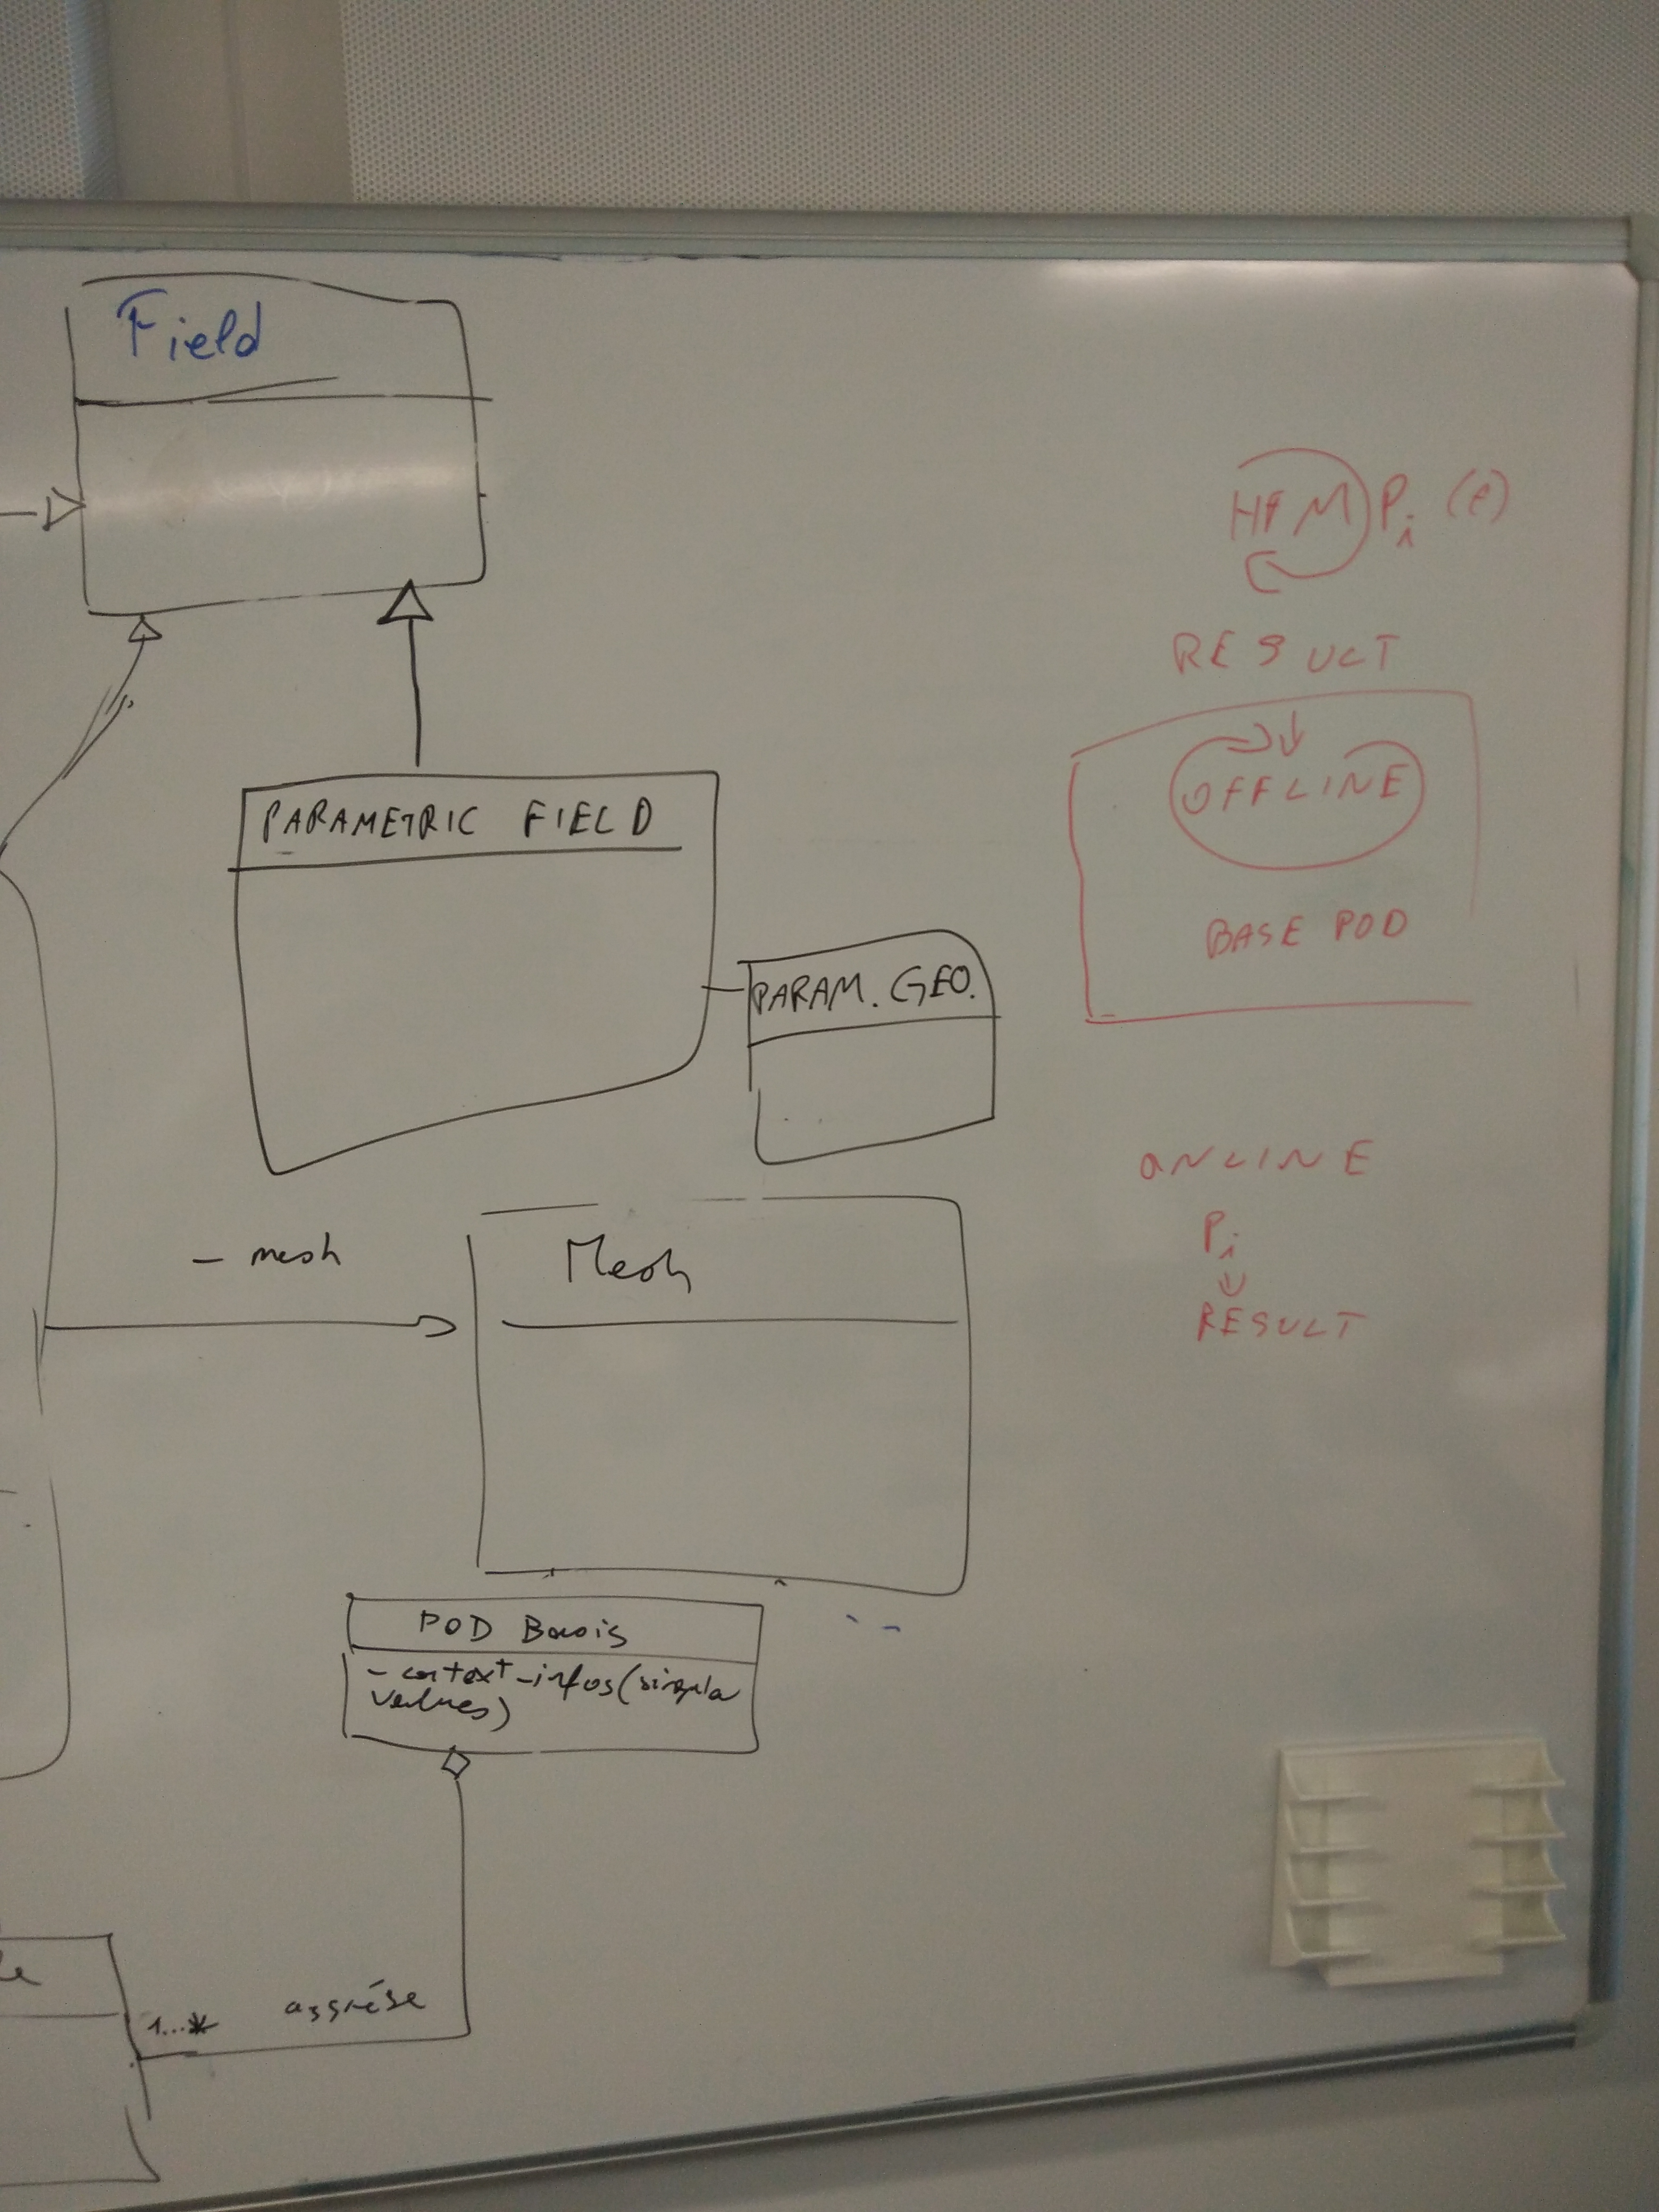 Field
PARAMETRIC FIELD
PARAM. GEO.
- mesh
Mesh
POD Basis
- context-infos (singula
values)
1...*
aggrége
HFM Pi (t)
RESULT
OFFLINE
BASE POD
ONLINE
Pi
RESULT